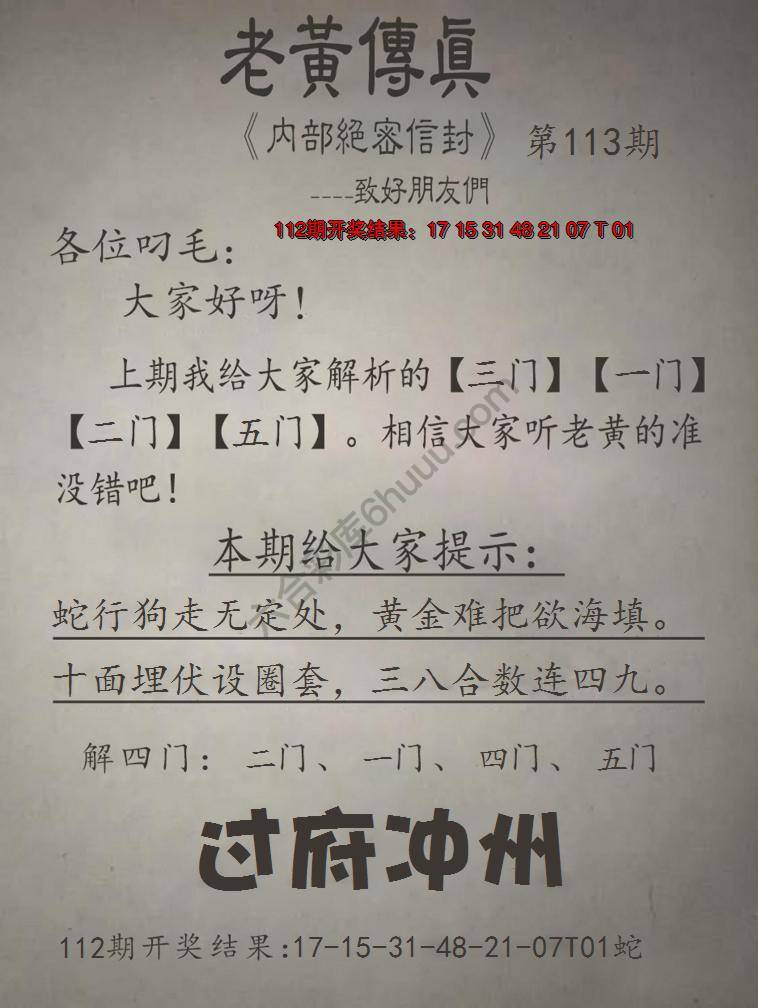 老黃傳眞
《内部絕密信封》 第113期
----致好朋友們
112期开奖结果：17 15 31 48 21 07 T 01
各位叼毛：
大家好呀！
上期我给大家解析的【三门】【一门】
【二门】【五门】。相信大家听老黄的准
没错吧！
本期给大家提示：
蛇行狗走无定处，黄金难把欲海填。
十面埋伏设圈套，三八合数连四九。
解四门： 二门、 一门、 四门、 五门
过府冲州
112期开奖结果:17-15-31-48-21-07T01蛇
六合彩库6huuu.com